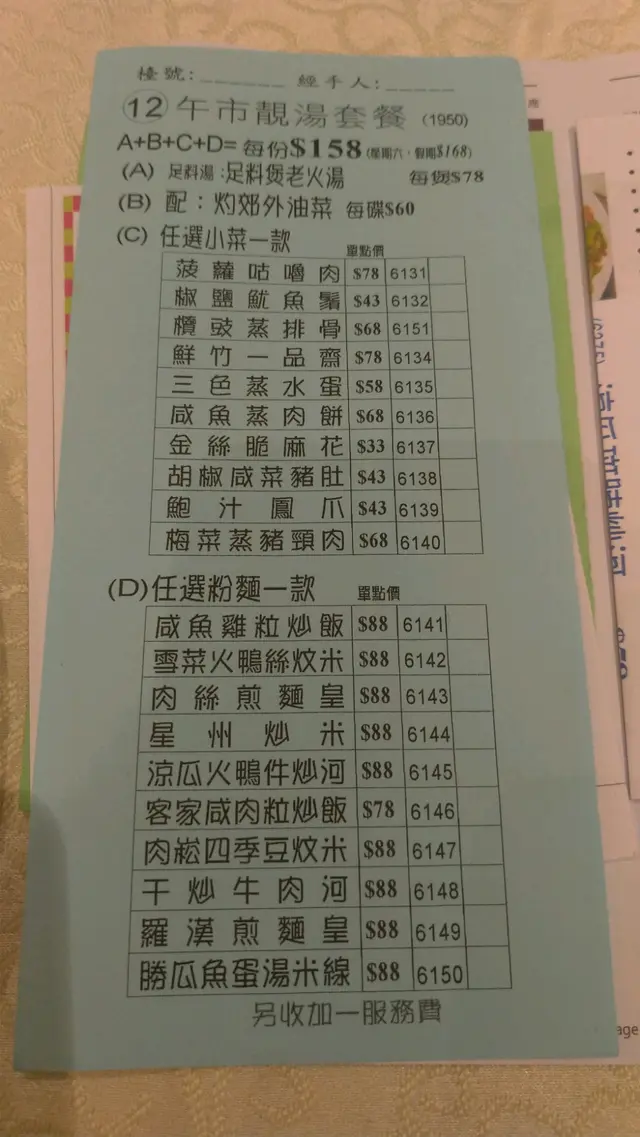 檯號:______ 經手人:_____
⑫午市靚湯套餐 (1950)
A+B+C+D= 每份$158 (星期六,假期$168)
(A) 足料湯:足料煲老火湯 每煲$78
(B) 配:灼郊外油菜 每碟$60
(C) 任選小菜一款 單點價
菠蘿咕嚕肉 $78 6131
椒鹽魷魚鬚 $43 6132
欖豉蒸排骨 $68 6151
鮮竹一品齋 $78 6134
三色蒸水蛋 $58 6135
咸魚蒸肉餅 $68 6136
金絲脆麻花 $33 6137
胡椒咸菜豬肚 $43 6138
鮑汁鳳爪 $43 6139
梅菜蒸豬頸肉 $68 6140
(D)任選粉麵一款 單點價
咸魚雞粒炒飯 $88 6141
雪菜火鴨絲炆米 $88 6142
肉絲煎麵皇 $88 6143
星州炒米 $88 6144
涼瓜火鴨件炒河 $88 6145
客家咸肉粒炒飯 $78 6146
肉崧四季豆炆米 $88 6147
干炒牛肉河 $88 6148
羅漢煎麵皇 $88 6149
勝瓜魚蛋湯米線 $88 6150
另收加一服務費